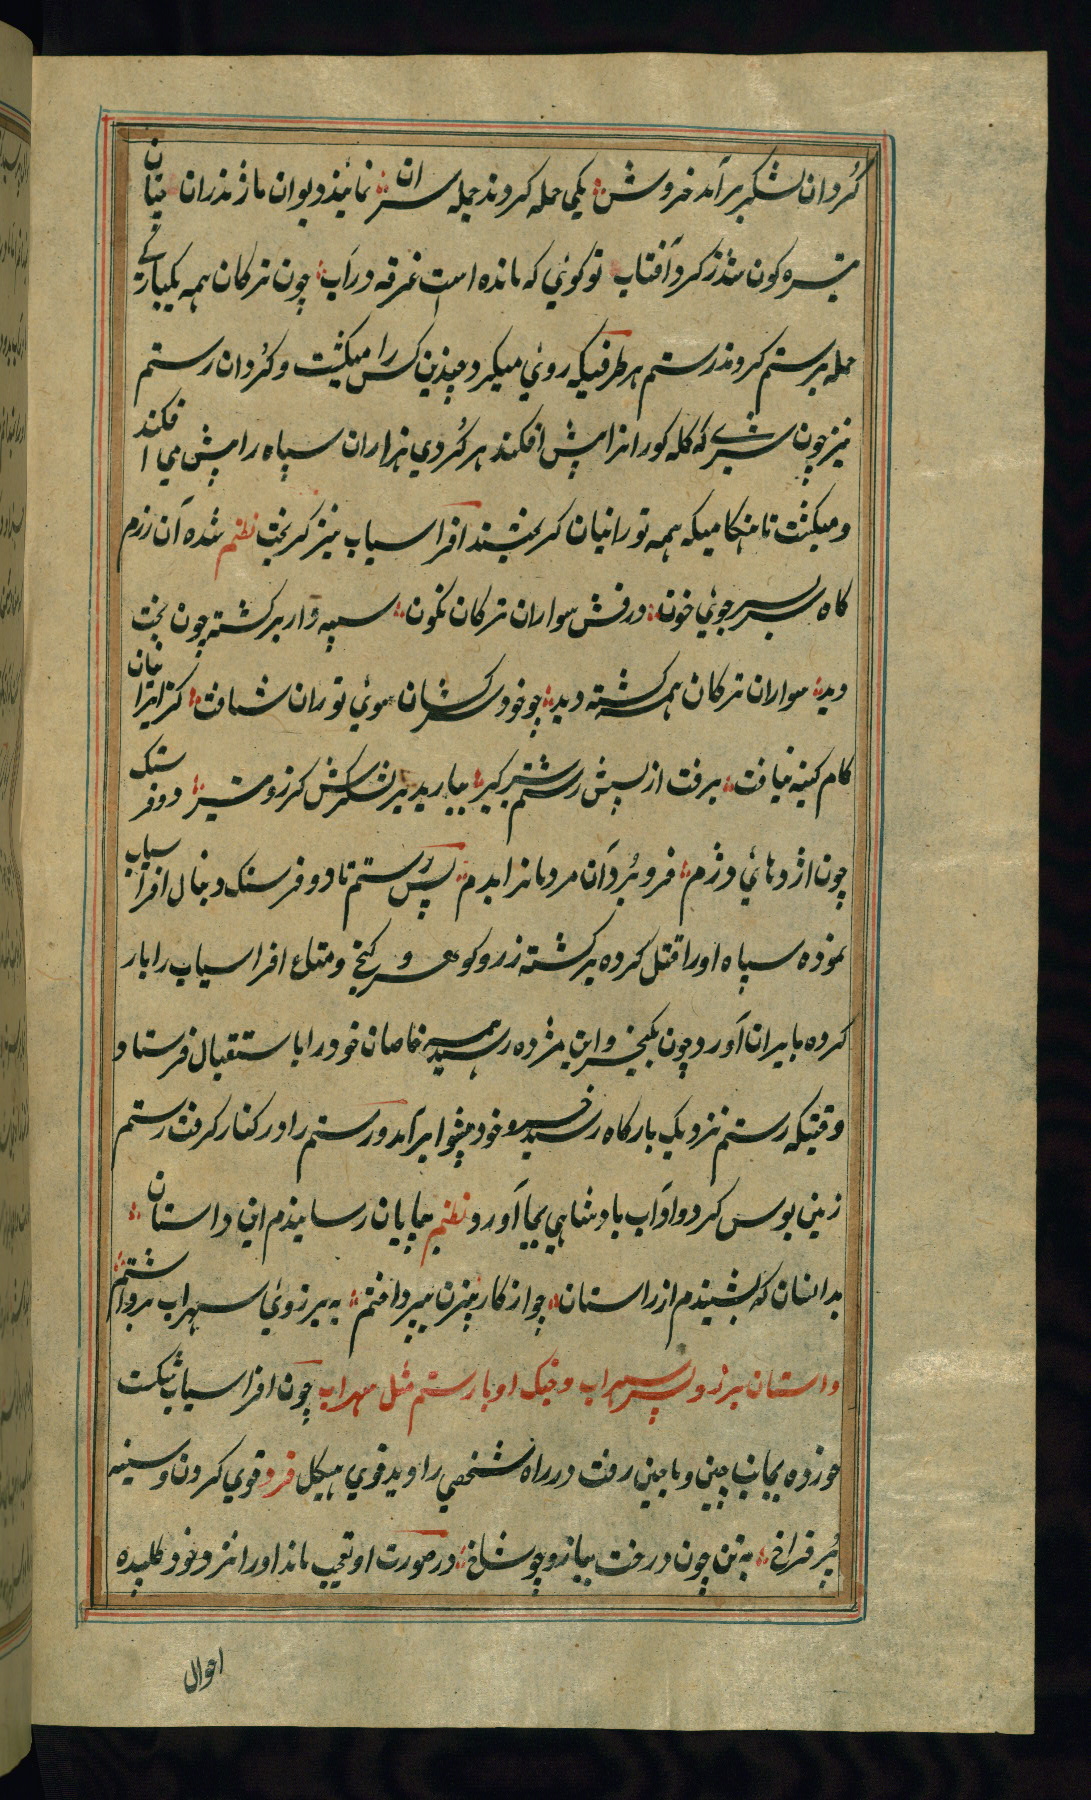 گردان لشکر برآمد خروش یکی حمله کردند جمله سران نمایند دیوان مازندران چنان
تیره کون شد ز کرد آفتاب تو کوئي که مانده است غرقه در آب چون ترکان همه یکبارکے
حمله بر رستم کردند رستم هر طرفیکه روئي میکرد چندین کس را میکشت و کردان رستم
نیز چون شیرے که کله کور را از پیش افکند هر کردي هزاران سپاه را پیش مي افکند
و میکشت تا هنکامیکه همه تورانیان کریختند افراسیاب نیز کریخت نظم شده آن رزم
کاه سربسر جوئي خون درفش سواران ترکان نکون سپه وار برکشته چون بخت
دید سواران ترکان همه کشته دید چو خود سرکشان سوئي توران شتافت کز ایرانیان
کام کینه نیافت برفت از پیش رستم شیرکیر ببارید بر لشکرش کرز و تیر دو فرسنک
چون اژدهائي دژم فرو برد آن مردمانرا بدم پس رستم تا دو فرسنک دنبال افراسیاب
نموده سپاه او را قتل کرده برکشته زر و کوهر و کنج و متاع افراسیاب را بار
کرده بایران آورد چون بکیخسرو این مژده رسید همه خاصان خود را باستقبال فرستاد
وقتیکه رستم نزدیک بارکاه رسید خسرو خود پیشوا برآمد و رستم را در کنار کرفت رستم
زمین بوس کرد و آداب بادشاهي بجا آورد نظم بپایان رسانیدم این داستان
بدانسان که بشنیدم از راستان چو از کار بیژن بپرداختم به برزوي سهراب برداشتم
داستان برزو پسر سهراب و جنک او با رستم مثل سهراب چون افراسیاب شکست
خورده بجانب چین و ماچین رفت در راه شخصي را دید قوي هیکل فرد قوي کردن و سینه
پر فراخ به تن چون درخت ببازو چو شاخ در صورت او تعجب ماند او را نزد خود طلبیده
احوال